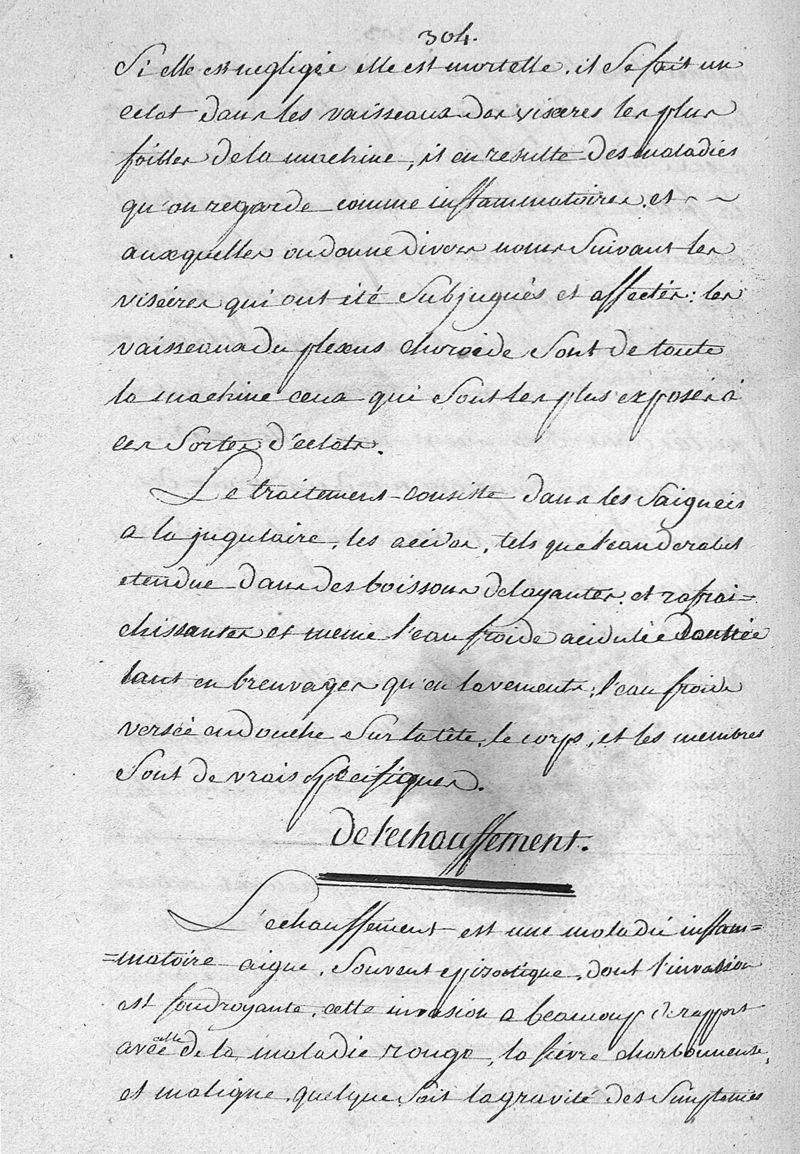 304.
Si elle est negligée elle est mortelle, il se fait un
eclat dans les vaisseaux des viseres les plus
foibles de la machine, il en resulte des maladies
qu'on regarde comme inflammatoires, et
auxquelles on donne divers noms suivant les
viséres qui ont été subjugués et affectés: les
vaisseaux du plexus choroide sont de toute
la machine ceux qui sont les plus exposés à
ces sortes d'éclats.
Le traitement consiste dans les saignées
a la jugulaire, les acides, tels que l'eau de rabel
etendue dans des boissons delayantes, et rafrai=
chissantes et meme l'eau froide acidulée donnée
tant en breuvages qu'en lavements, l'eau froide
versée en douche sur la tête, le corps, et les membres
sont de vrais specifiques.
De l'echauffement.
L'échauffement est une maladie inflam=
=matoire aigue, souvent epizootique, dont l'invasion
est foudroyante, cette invasion a beaucoup de rapport
avec celle de la maladie rouge, la fievre charbonneuse,
et maligne, quelque soit la gravité des simptomes